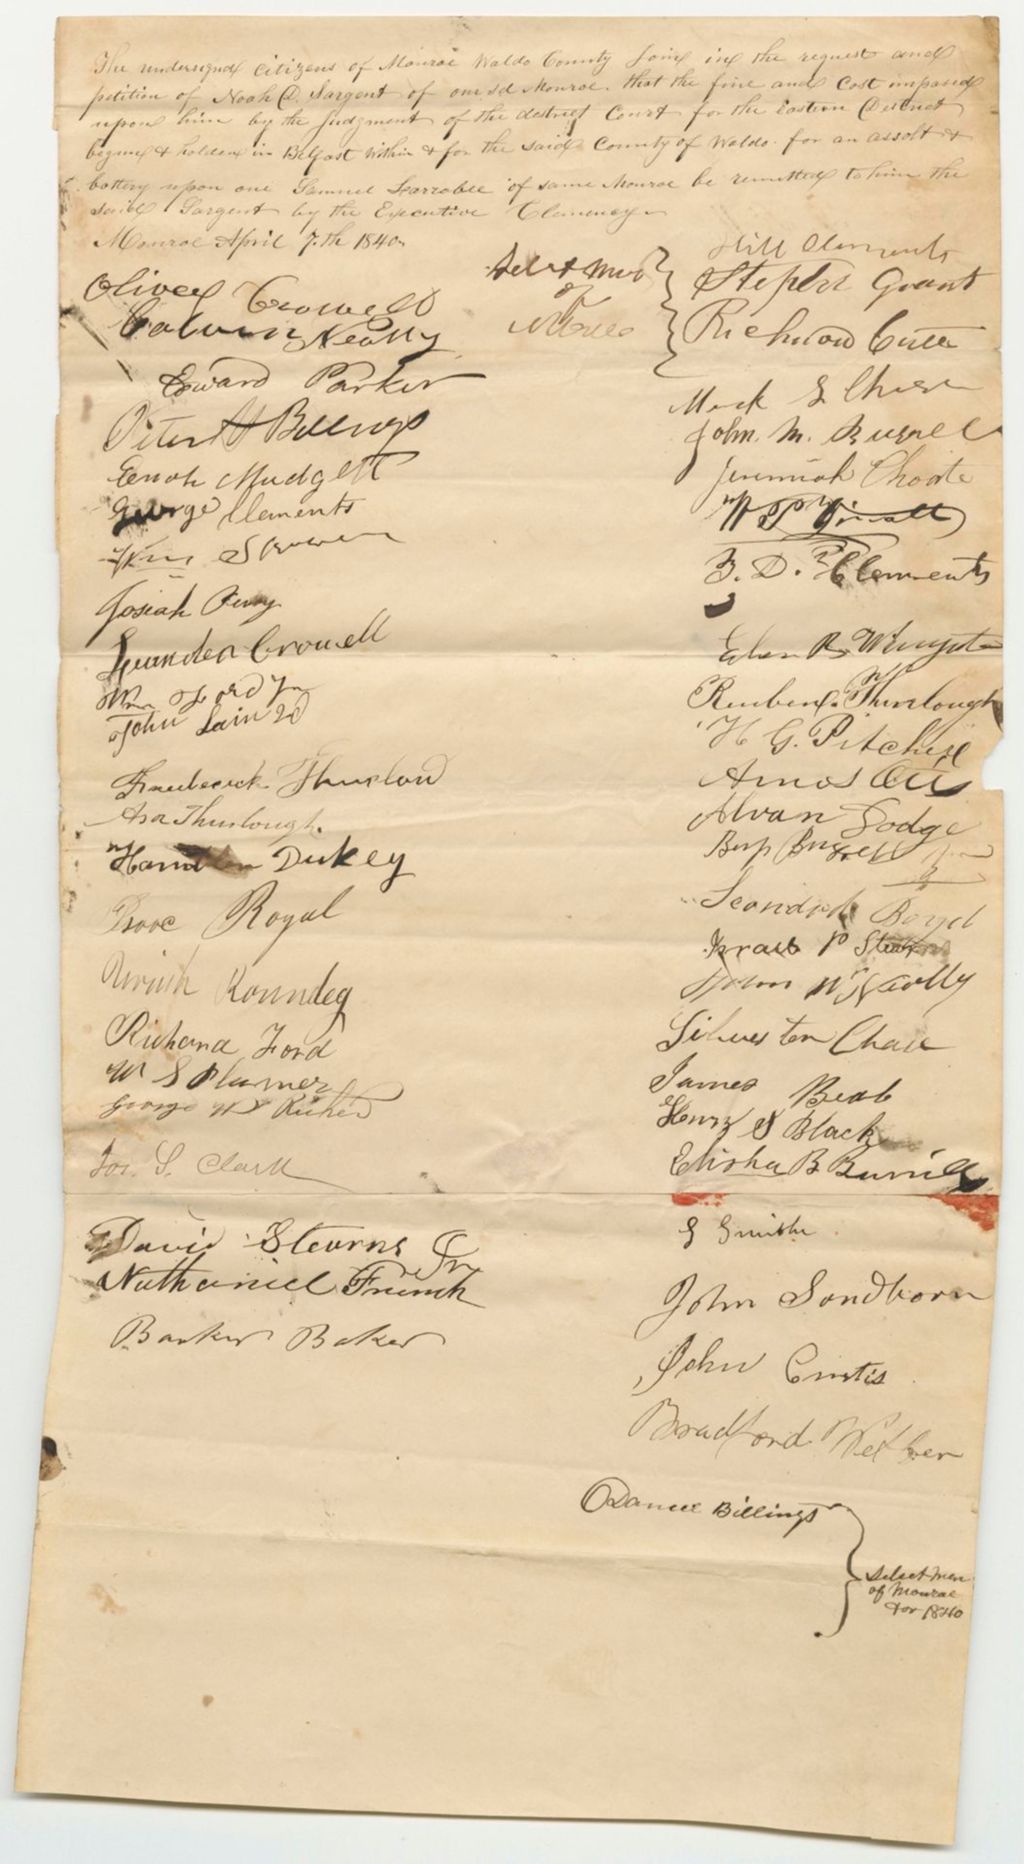 The undersigned Citizens of Monroe Waldo County Join in the request and
petition of Noah D. Sargent of one sd Monroe. that the fine and Cost imposed
upon him by the Judgment of the district Court for the Eastern District
begun & holden in Belfast within & for the said County of Waldo. for an assolt &
battery upon one Samuel Larrabee of same Monroe be remitted to him the
said Sargent by the Executive Clemency
Monroe April 7th 1840
Oliver Crowell
Calvin Neally
Edward Parker
Peter H Billings
Enoh Mudgett
George Clements
Josiah Perry
Leander Crowell
Wm Ford Jr
John Lain 2d
Thurlow
Asa Thurlough
Hamilton Dukey
Royal
Uriah Roundey
Richard Ford
W S Plumer
George W Richer
Jos. S. Clark
David Stearns Jr
Nathaniel French
Barker Baker
Select Men
of
Hill Clements
Stephen Grant
Richard Cutts
Mark S Chase
John. M. Russell
Jeremiah Choate
F. D. Clements
Eben R
Reuben Thurlough
H G. Pitcher
Amos Otis
Alvan Dodge
Boyd
Israel P
John W Neally
Silvester Chase
James Beab
Henry S Black
Elisha B Burrill
S Smith
John Sandborn
John Curtis
Bradford
Daniel Billings
Select Men
of Monroe
for 1840